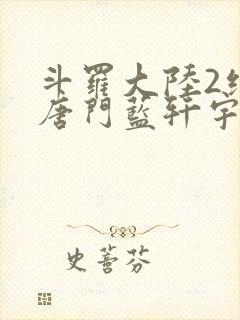 斗羅大陸2絕
唐門藍軒宇
史蓍芬